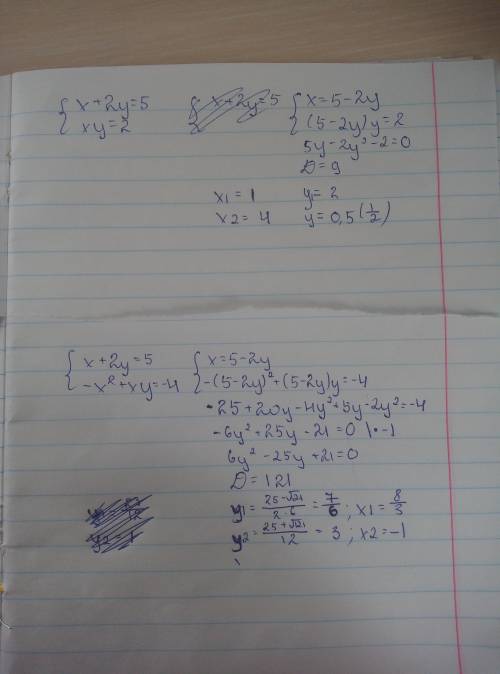 { x+2y=5 { x+2y=5 { x=5-2y
xy=2 (5-2y)y=2
5y-2y²-2=0
D=9
x1=1 y=2
x2=4 y=0,5(1/2)
{ x+2y=5 { x=5-2y
-x²+xy=-4 -(5-2y)²+(5-2y)y=-4
-25+20y-4y²+5y-2y²=-4
-6y²+25y-21=0 |·-1
6y²-25y+21=0
D=121
y1=(25-√121)/(2·6)=7/6; x1=8/3
y2=(25+√121)/12=3; x2=-1